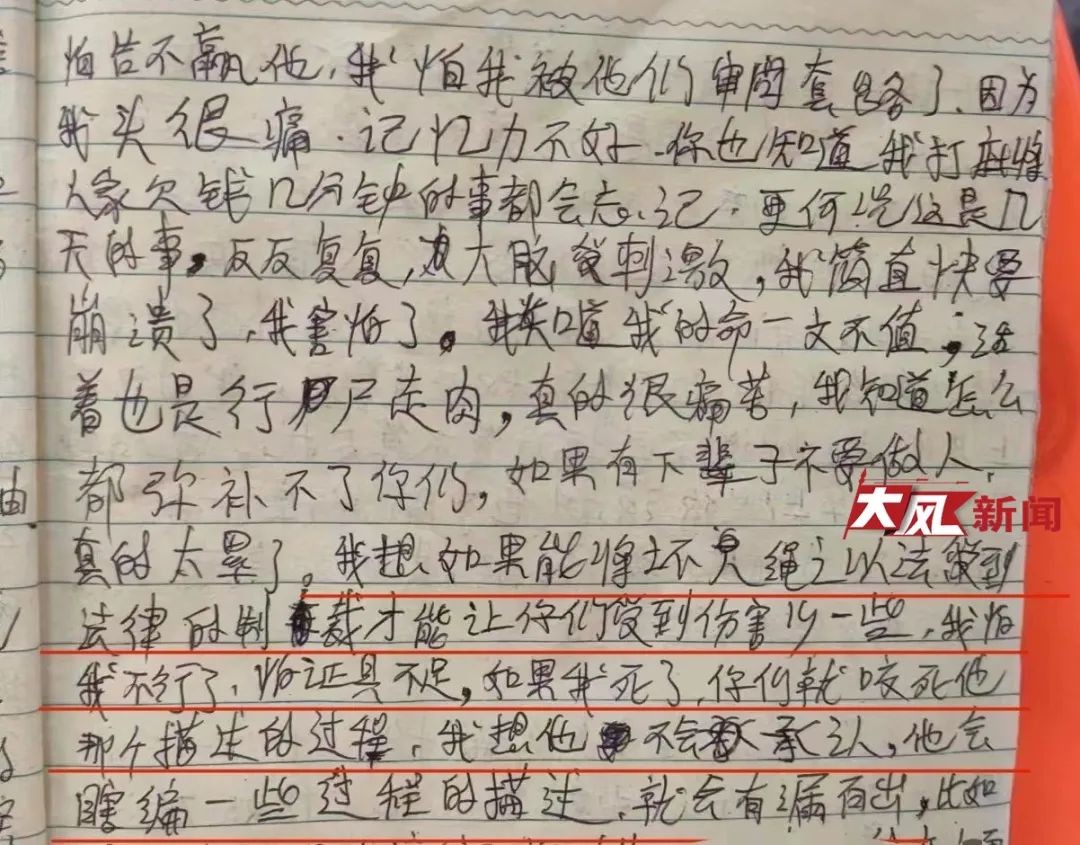 怕告不赢他，我怕我被他们审问套路了、因为
我头很痛．记忆力不好．你也知道我打麻将
人家欠钱几分钟的事都会忘记．更何况这是几
天的事。反反复复，大脑受刺激，我简直快要
崩溃了，我害怕了。我知道我的命一文不值，活
着也是行尸走肉，真的很痛苦，我知道怎么
都弥补不了你们，如果有下辈子不要做人．
大风新闻
真的太累了。我想如果能将坏人绳之以法受到
法律的制裁才能让你们受到伤害少一些，我怕
我不行了，怕证具不足，如果我死了，你们就咬死他
那个描述的过程，我想他不会承认，他会
瞎编一些过程的描述．就会有漏百出，比如
由